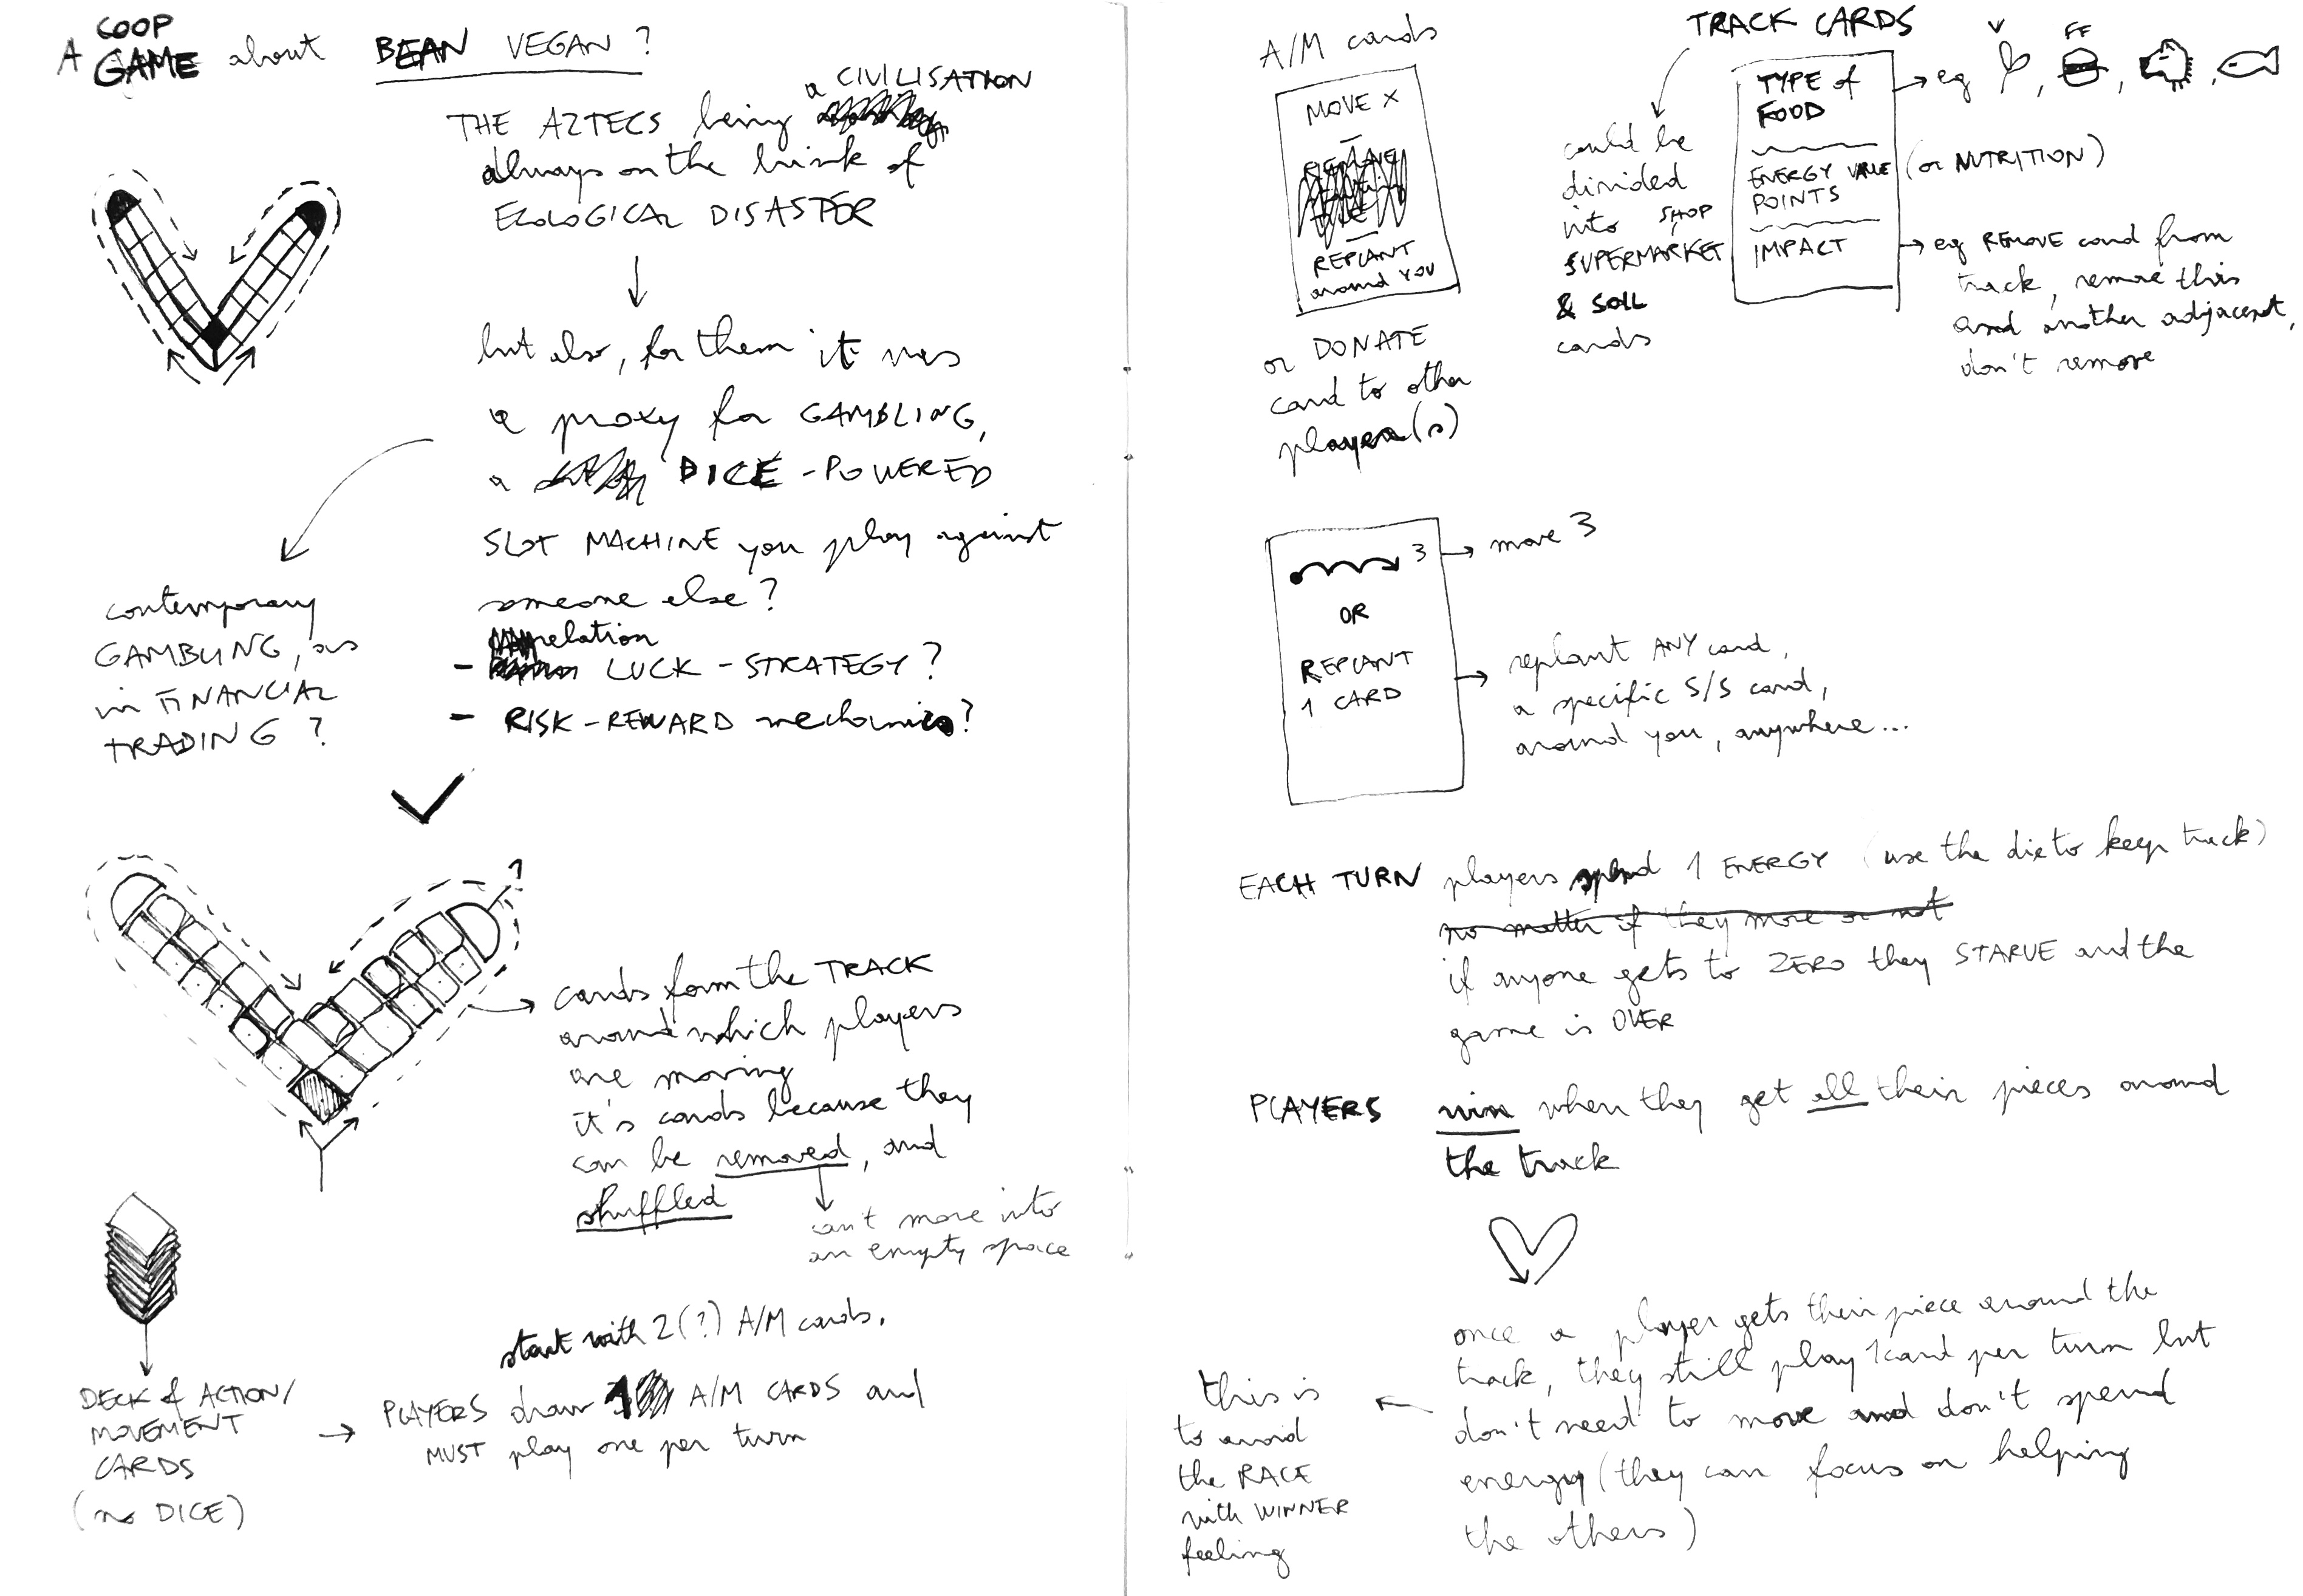 A COOP GAME about BEAN VEGAN ?
THE AZTECS being a CIVILISATION
always on the brink of
ECOLOGICAL DISASTER
but also, for them it was
a proxy for GAMBLING,
a DICE - POWERED
SLOT MACHINE you play against
someone else?
- relation LUCK - STRATEGY ?
- RISK - REWARD mechanics?
contemporary
GAMBLING, as
in FINANCIAL
TRADING ?
cards form the TRACK
around which players
are moving
it's cards because they
can be removed, and
shuffled
can't move into
an empty space
DECK of ACTION/
MOVEMENT
CARDS
(no DICE)
start with 2(?) A/M cards.
PLAYERS draw 1 A/M CARDS and
MUST play one per turn
A/M cards
MOVE X
REPLANT
around YOU
or DONATE
card to other
player(s)
TRACK CARDS
could be
divided
into SHOP
SUPERMARKET
& SOIL
cards
TYPE of
FOOD
ENERGY VALUE (or NUTRITION)
POINTS
IMPACT
V
FF
eg , , ,
eg REMOVE card from
track, remove this
and another adjacent,
don't remove
3
OR
REPLANT
1 CARD
move 3
replant ANY card,
a specific S/S card,
around you, anywhere...
EACH TURN players spend 1 ENERGY (use the die to keep track)
no matter if they move or not
if anyone gets to ZERO they STARVE and the
game is OVER
PLAYERS win when they get all their pieces around
the track
once a player gets their piece around the
track, they still play 1 card per turn but
don't need to move and don't spend
energy (they can focus on helping
the others)
this is
to avoid
the RACE
with WINNER
feeling